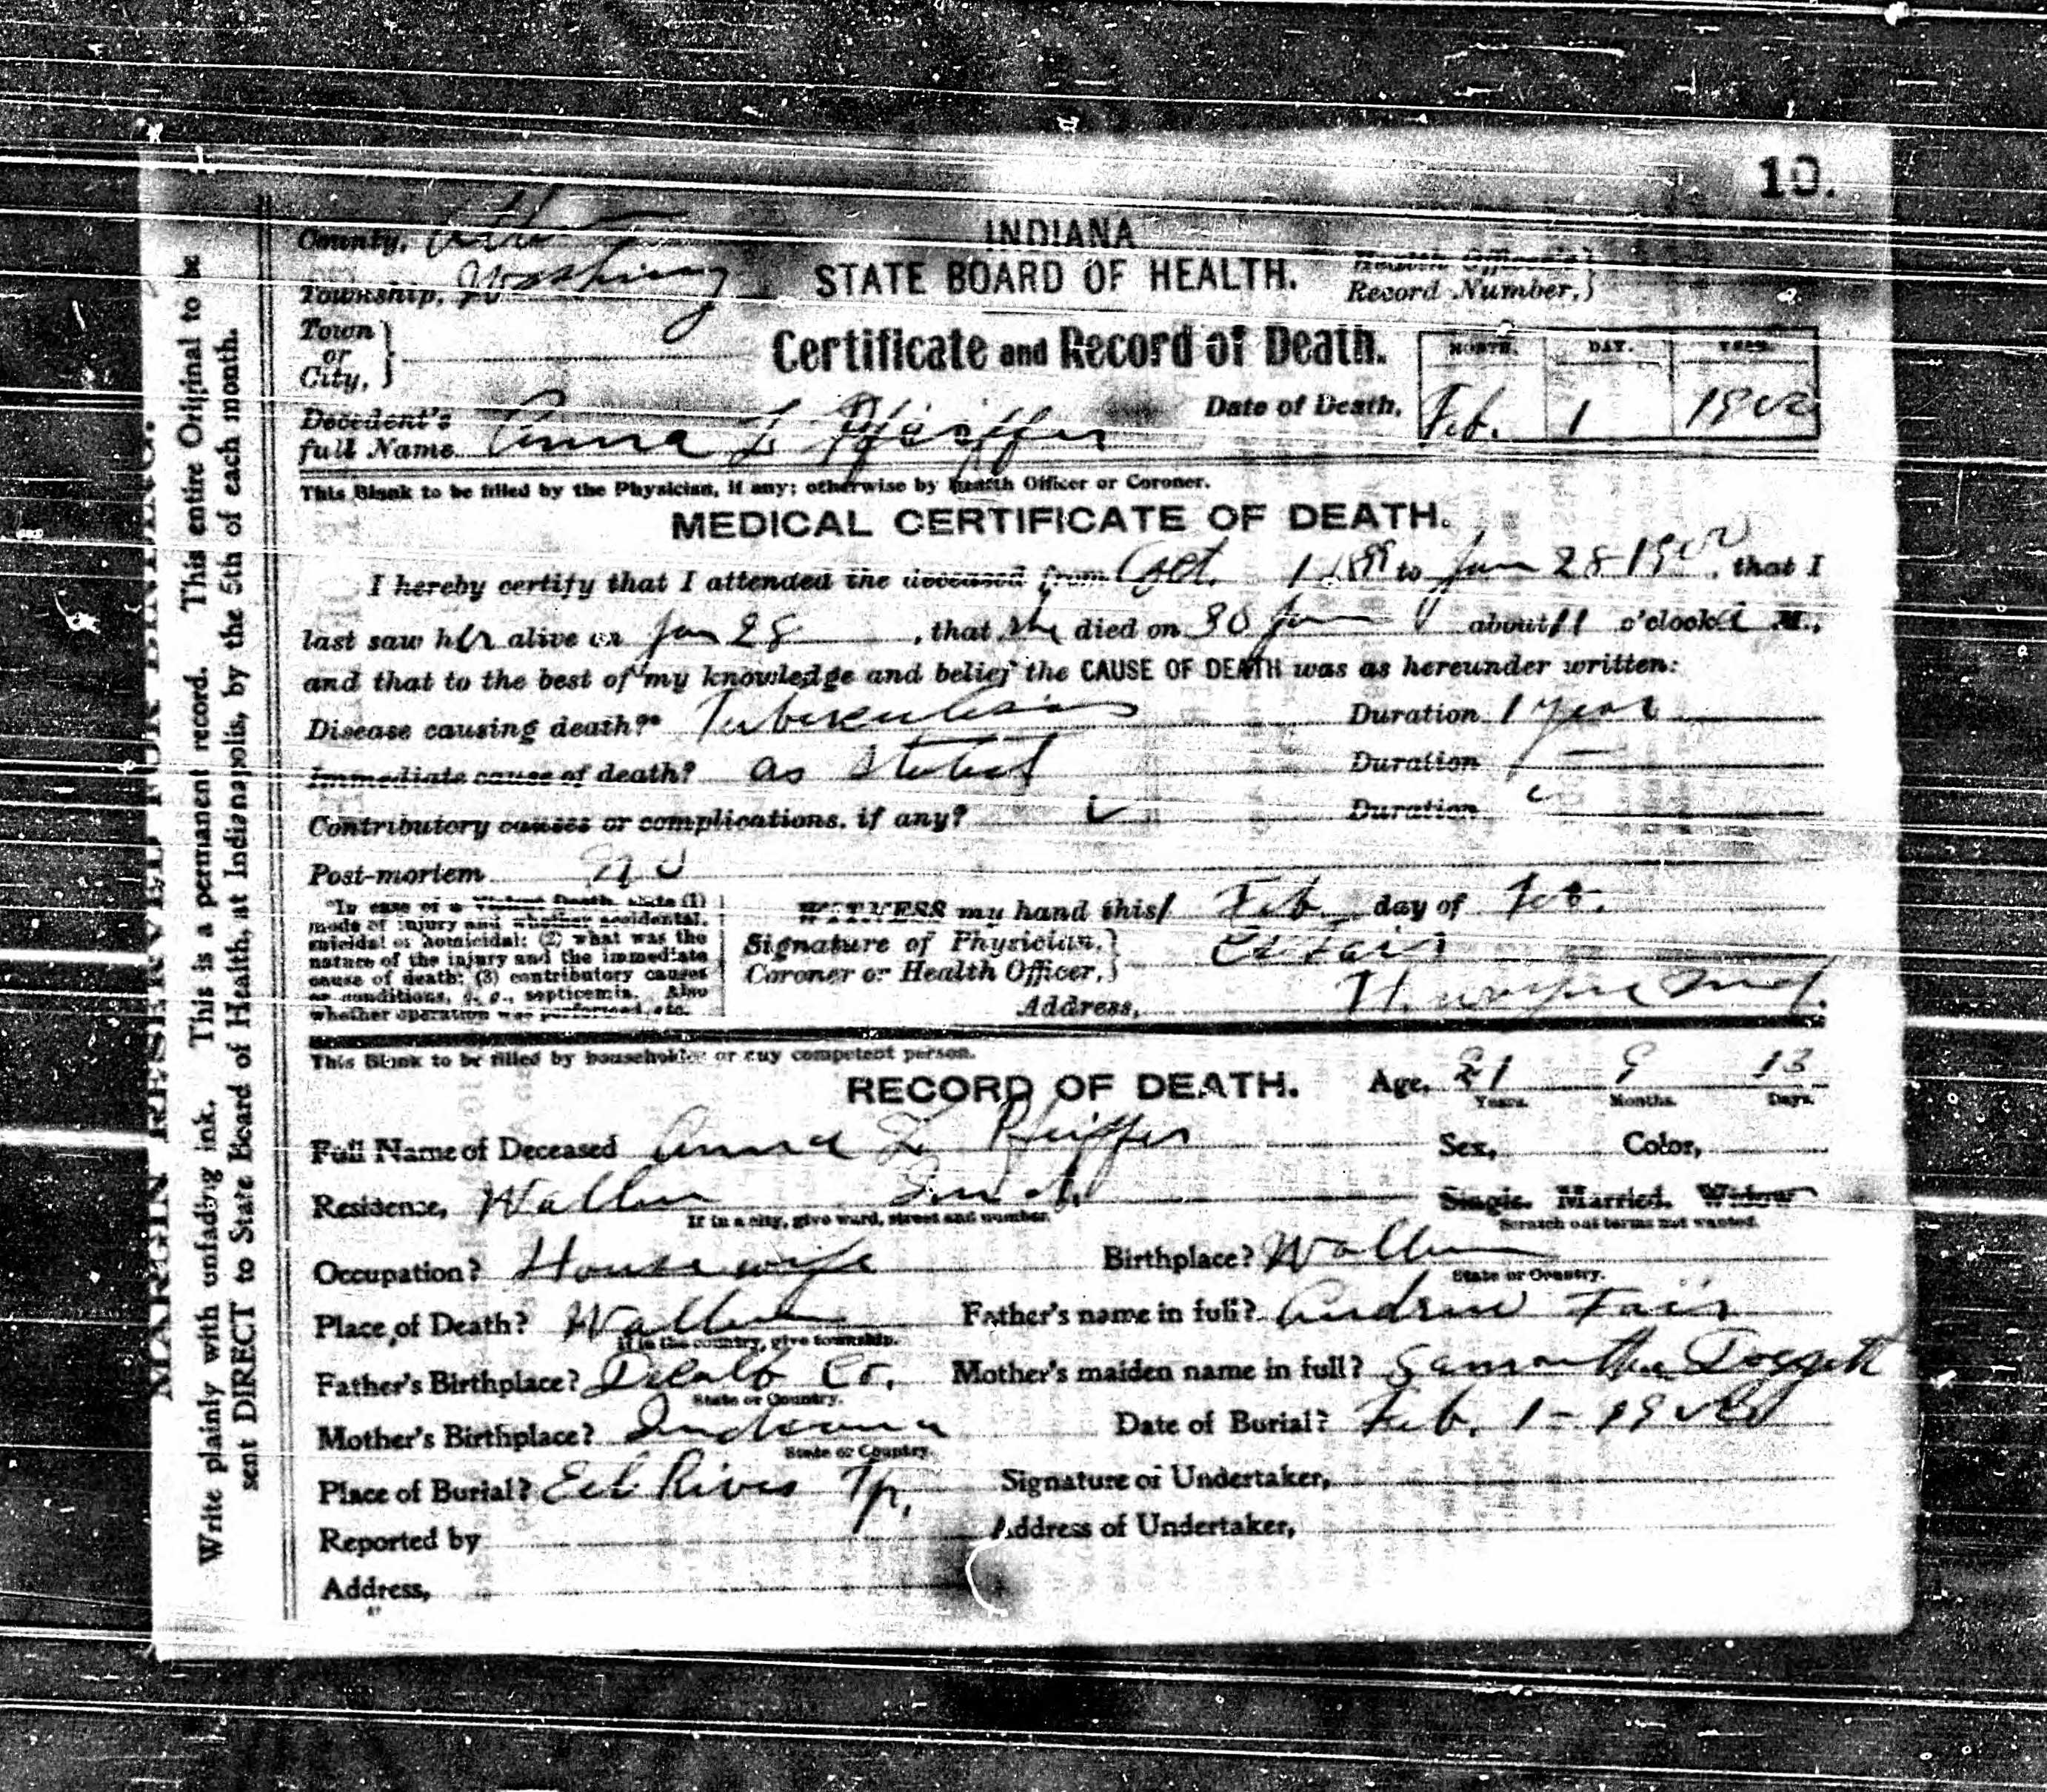 10.
County,
INDIANA
Township, Washing
STATE BOARD OF HEALTH.
Health Officer's
Record Number,
Town
or
City,
Certificate and Record of Death.
MONTH. DAY. YEAR.
Decedent's
full Name Anna L Pfeiffer
Date of Death, Feb. 1 1900
This Blank to be filled by the Physician, if any; otherwise by Health Officer or Coroner.
MEDICAL CERTIFICATE OF DEATH.
I hereby certify that I attended the deceased from Oct. 1 1899 to Jan 28 1900, that I
last saw her alive on Jan 28, that she died on 30 Jan " about 11 o'clock a M.,
and that to the best of my knowledge and belief the CAUSE OF DEATH was as hereunder written:
Disease causing death?* Tuberculosis Duration 1 year
Immediate cause of death? as stated Duration
Contributory causes or complications, if any? Duration
Post-mortem no
*In case of a Violent Death, state (1)
mode of injury and whether accidental,
suicidal or homicidal; (2) what was the
nature of the injury and the immediate
cause of death; (3) contributory causes
or conditions, e. g., septicemia. Also
whether operation was performed, etc.
WITNESS my hand this 1 Feb day of Feb.
Signature of Physician,
Coroner or Health Officer, Fair
Address, Ft. Wayne Ind.
This Blank to be filled by householder or any competent person.
RECORD OF DEATH.
Age, 21 9 13
Years. Months. Days.
Full Name of Deceased Anna L Pfeiffer Sex, Color,
Residence, Wallen Ind. Single. Married. Widow
If in a city, give ward, street and number.
Scratch out terms not wanted.
Occupation? Housewife Birthplace? Wallen
State or Country.
Place of Death? Wallen Father's name in full? Andrew Fair
If in the country, give township.
Father's Birthplace? Dekalb Co. Mother's maiden name in full? Samantha Doggett
State or Country.
Mother's Birthplace? Indiana Date of Burial? Feb. 1- 1900
State or Country
Place of Burial? Eel River Tp. Signature of Undertaker,
Reported by Address of Undertaker,
Address,
MARGIN RESERVED FOR BINDING.
Write plainly with unfading ink. This is a permanent record. This entire Original to be
sent DIRECT to State Board of Health, at Indianapolis, by the 5th of each month.